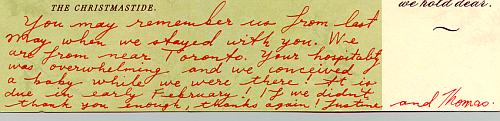 THE CHRISTMASTIDE.
we hold dear.
You may remember us from last
May when we stayed with you. We
are from near Toronto. Your hospitality
was overwhelming and we conceived
a baby while we were there! It is
due in early February! If we didn't
thank you enough, thanks again! Justine and Thomas.